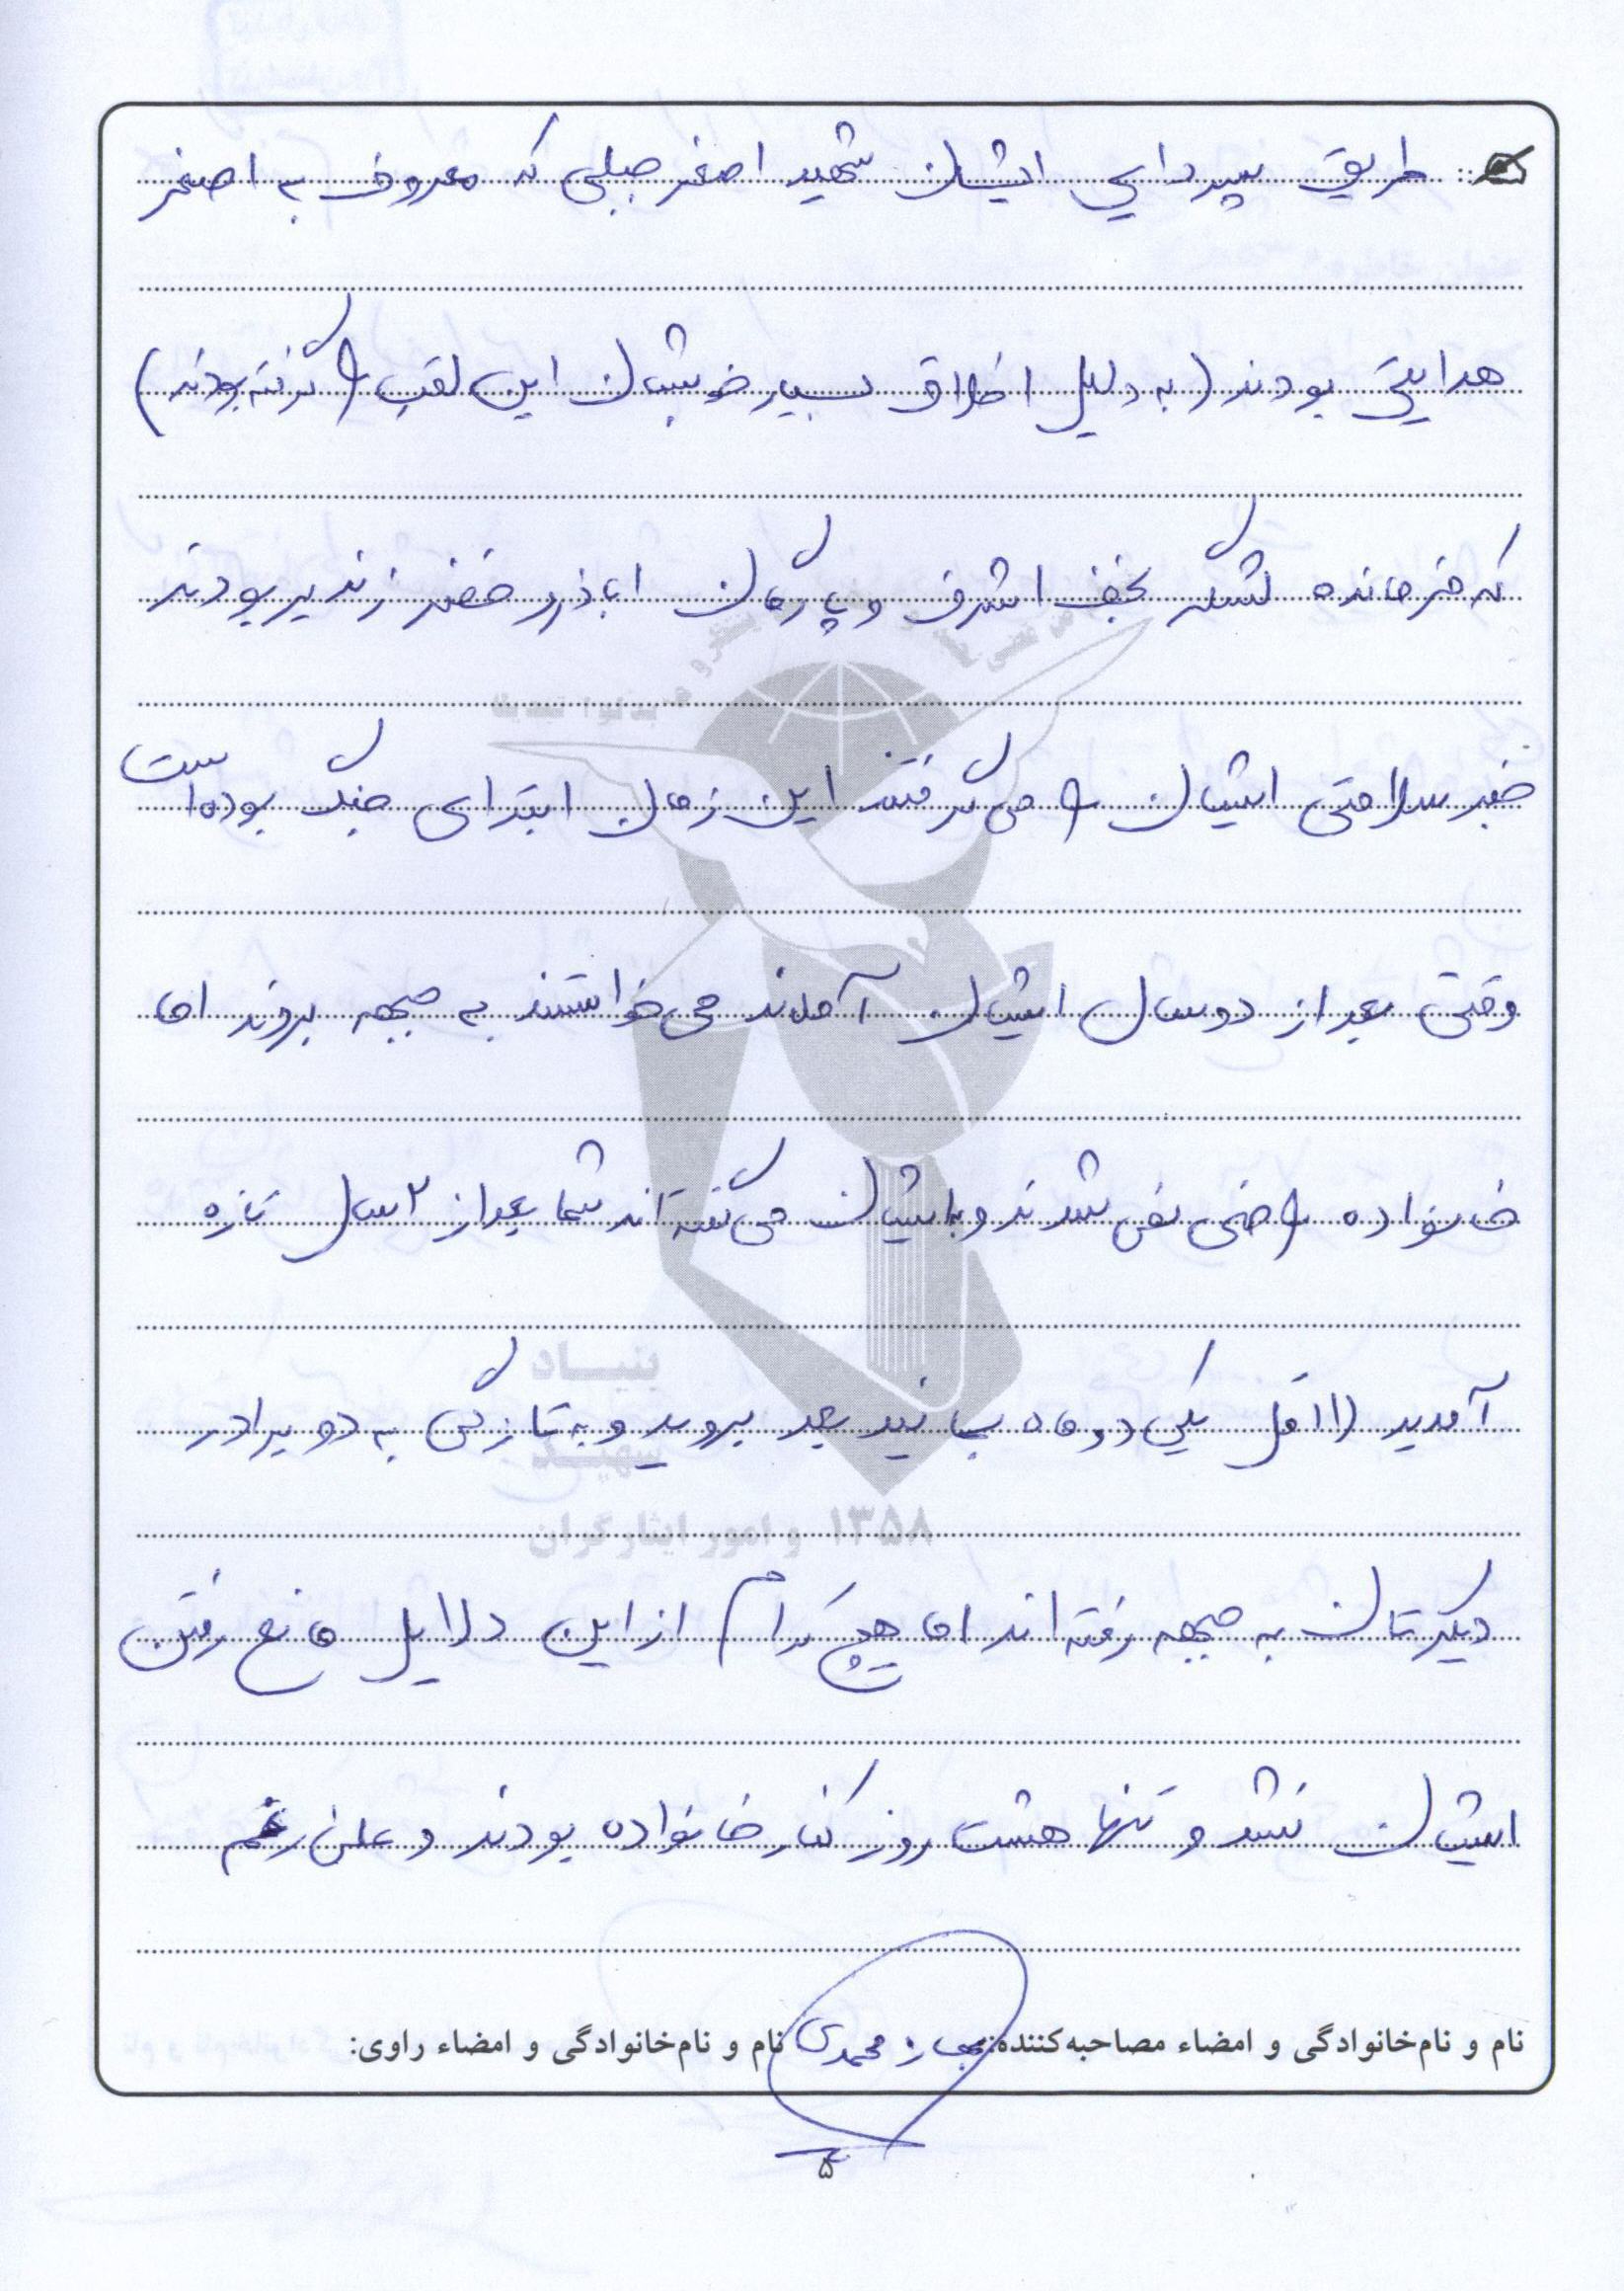 طریق پسر دایی ایشان شهید اصغر جبلی که معروف به اصغر
هدایتی بودند (به دلیل اخلاق بسیار خوبشان این لقب را گرفته بودند)
که فرمانده لشگر نجف اشرف و پادگان اباذر و خضر زندیر بودند
خبر سلامتی ایشان را می گرفتند این زمان ابتدای جنگ بوده است
وقتی بعد از دو سال ایشان آمدند می خواستند به جبهه بروند اما
خانواده راضی نمی شدند و به ایشان می گفته اند شما بعد از ۲ سال تازه
آمدید لااقل یکی دو ماه بمانید بعد بروید و به تازگی به دو برادر
دیگرتان به جبهه رفته اند اما هیچ کدام از این دلایل مانع رفتن
ایشان نشد و تنها هشت روز کنار خانواده بودند و علی رغم
نام و نام‌خانوادگی و امضاء مصاحبه‌کننده: محمدی نام و نام‌خانوادگی و امضاء راوی:
۵
بنیاد
شهید
۱۳۵۸ و امور ایثارگران